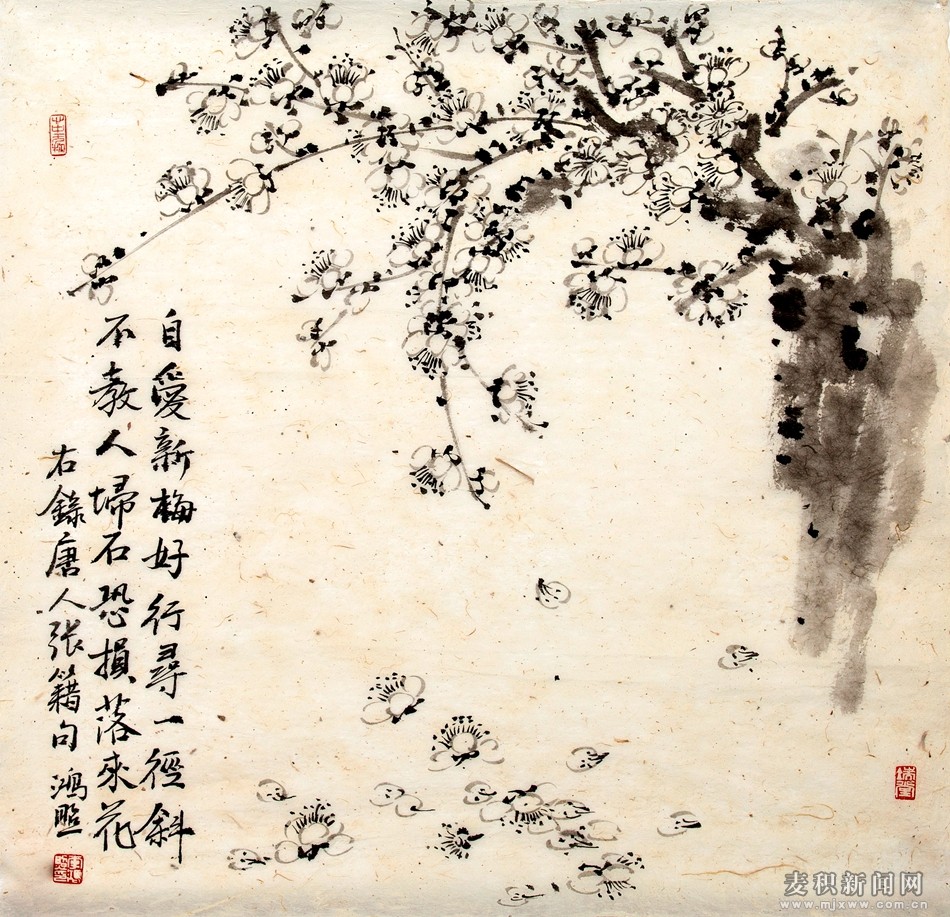 自愛新梅好行尋一徑斜
不教人埽石恐損落來花
右錄唐人張籍句 鴻熙
麦积新闻网
www.mjxww.com.cn